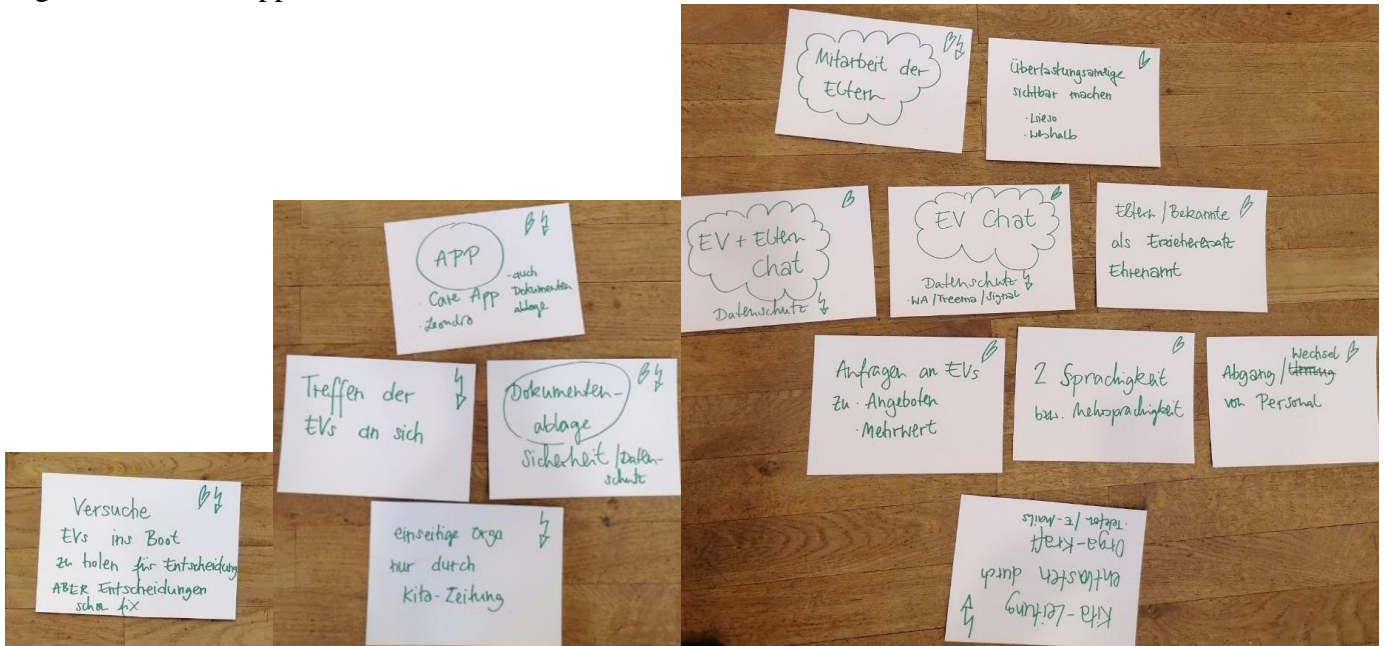 Versuche
EVs ins Boot
zu holen für Entscheidung
ABER Entscheidungen
schon fix
APP
- auch
Dokumenten
ablage
· Care App
· Leandro
Treffen der
EVs an sich
Dokumenten-
ablage
Sicherheit / Daten-
schutz
einseitige Orga
nur durch
Kita-Leitung
Mitarbeit der
Eltern
Überlastungsanzeige
sichtbar machen
· Wieso
· Weshalb
EV + Eltern
Chat
Datenschutz
EV Chat
Datenschutz
· WA / Treema / Signal
Eltern / Bekannte
als Erzieherersatz
Ehrenamt
Anfragen an EVs
zu · Angeboten
· Mehrwert
2 Sprachigkeit
bzw. Mehrsprachigkeit
Wechsel
Abgang /
von Personal
Kita-Leitung
entlasten durch
Orga-Kraft
· Telefon / E-Mails